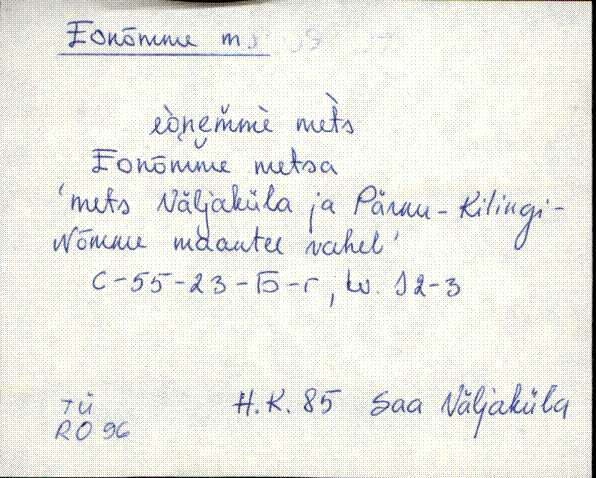 Eonõmme m
èo̬ņem̆mè met̀s
Eonõmme metsa
'mets Näljaküla ja Pärnu-Kilingi-
Nõmme maantee vahel'
C-55-23-Б-г, kv. J2-3
TÜ H.K. 85 Saa Näljaküla
RO 96